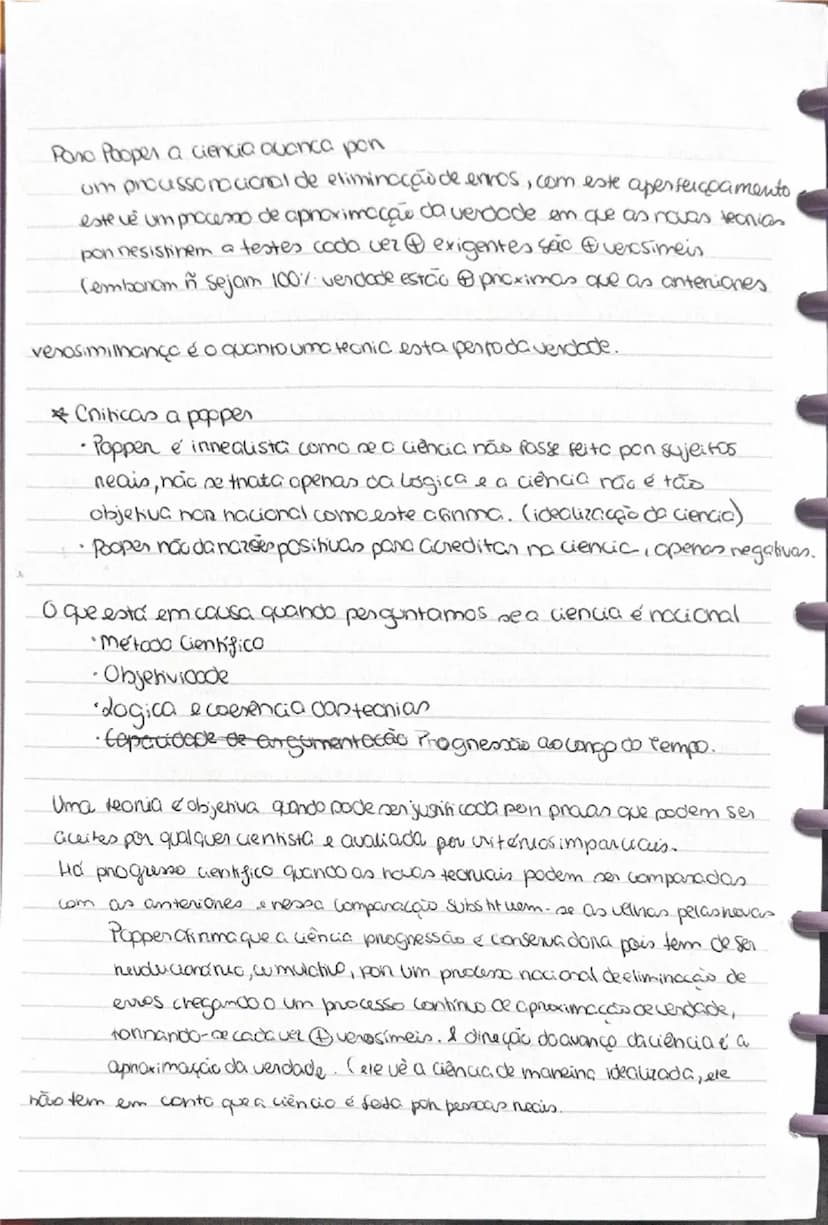 Para Pooper a ciencia avança por
um processo racional de eliminacção de erros, com este aperfeiçoamento
este vê um processo de aproximacção da verdade em que as novas teorias
por resistirem a testes cada vez ⊕ exigentes são ⊕ verosímeis
(emboram ñ sejam 100% verdade estão ⊕ proximas que as anteriores
verosimilhança é o quanto uma teoria esta perto da verdade.
* Criticas a popper
· Popper é irrealista como se a ciência não fosse feita por sujeitos
reais, não se trata apenas da lógica e a ciência não é tão
objetiva nor racional como este afirma. (idealizacção da ciencia)
· Pooper não da razões positivas para acreditar na ciencia, apenas negativas.
O que está em causa quando perguntamos se a ciencia é racional
· Método Científico
· Objetividade
· Logica e coerência das teorias
· ~~Capacidade de argumentacão~~ Progressão ao longo do tempo.
Uma teoria é objetiva quando pode ser justificada por provas que podem ser
aceites por qualquer cientista e avaliada por critérios imparciais.
Há progresso científico quando as novas teoruais podem ser comparadas
com as anteriores e nessa comparacção substituem-se as velhas pelas novas
Popper afirma que a ciência progressão é conservadora pois tem de ser
revolucionário, cumulctivo, por um processo racional de eliminacção de
erros chegando a um processo contínuo de aproximaccão de verdade,
tornando-se cada vez ⊕ verosímeis. A direção do avanço da ciência é a
aproximação da verdade. (ele vê a ciência de maneira idealizada, ele
não tem em conta que a ciência é feita por pessoas reais.